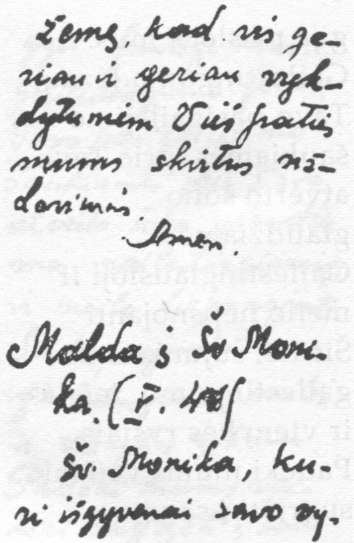 žemę, kad vis ge-
riau ir geriau vyk-
dytumėm Viešpaties
mums skirtus už-
davinius.
Amen.
Malda į Šv. Moni-
ką. (V. 4)
Šv. Monika, ku-
ri išgyvenai savo vy-